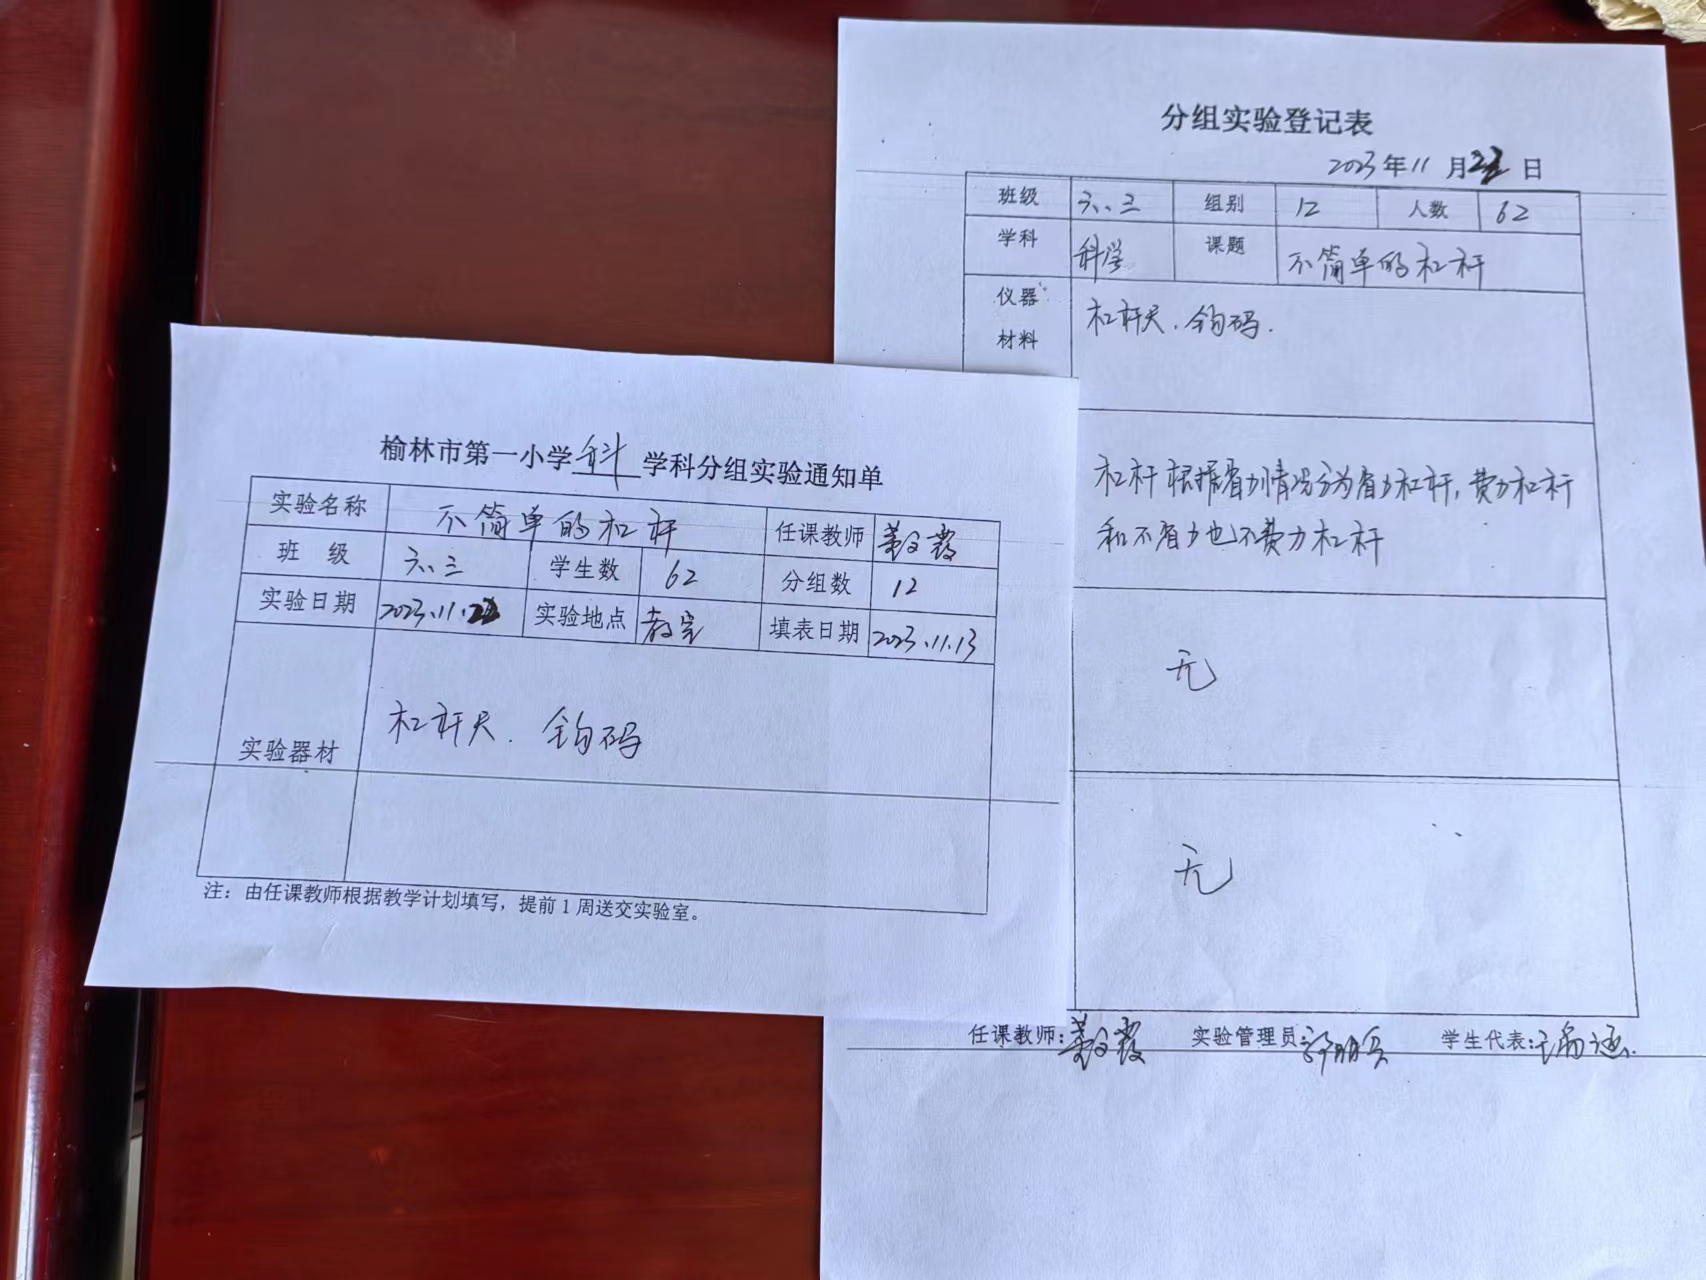 分组实验登记表
2023年11月22日
班级 六.三 组别 12 人数 62
学科 科学 课题 不简单的杠杆
仪器 材料 杠杆尺.钩码.
杠杆根据省力情况分为省力杠杆,费力杠杆
和不省力也不费力杠杆
无
无
任课教师: 实验管理员: 学生代表:
榆林市第一小学科学科分组实验通知单
实验名称 不简单的杠杆 任课教师
班 级 六.三 学生数 62 分组数 12
实验日期 2023.11.22 实验地点 教室 填表日期 2023.11.13
实验器材 杠杆尺.钩码
注：由任课教师根据教学计划填写，提前1周送交实验室。